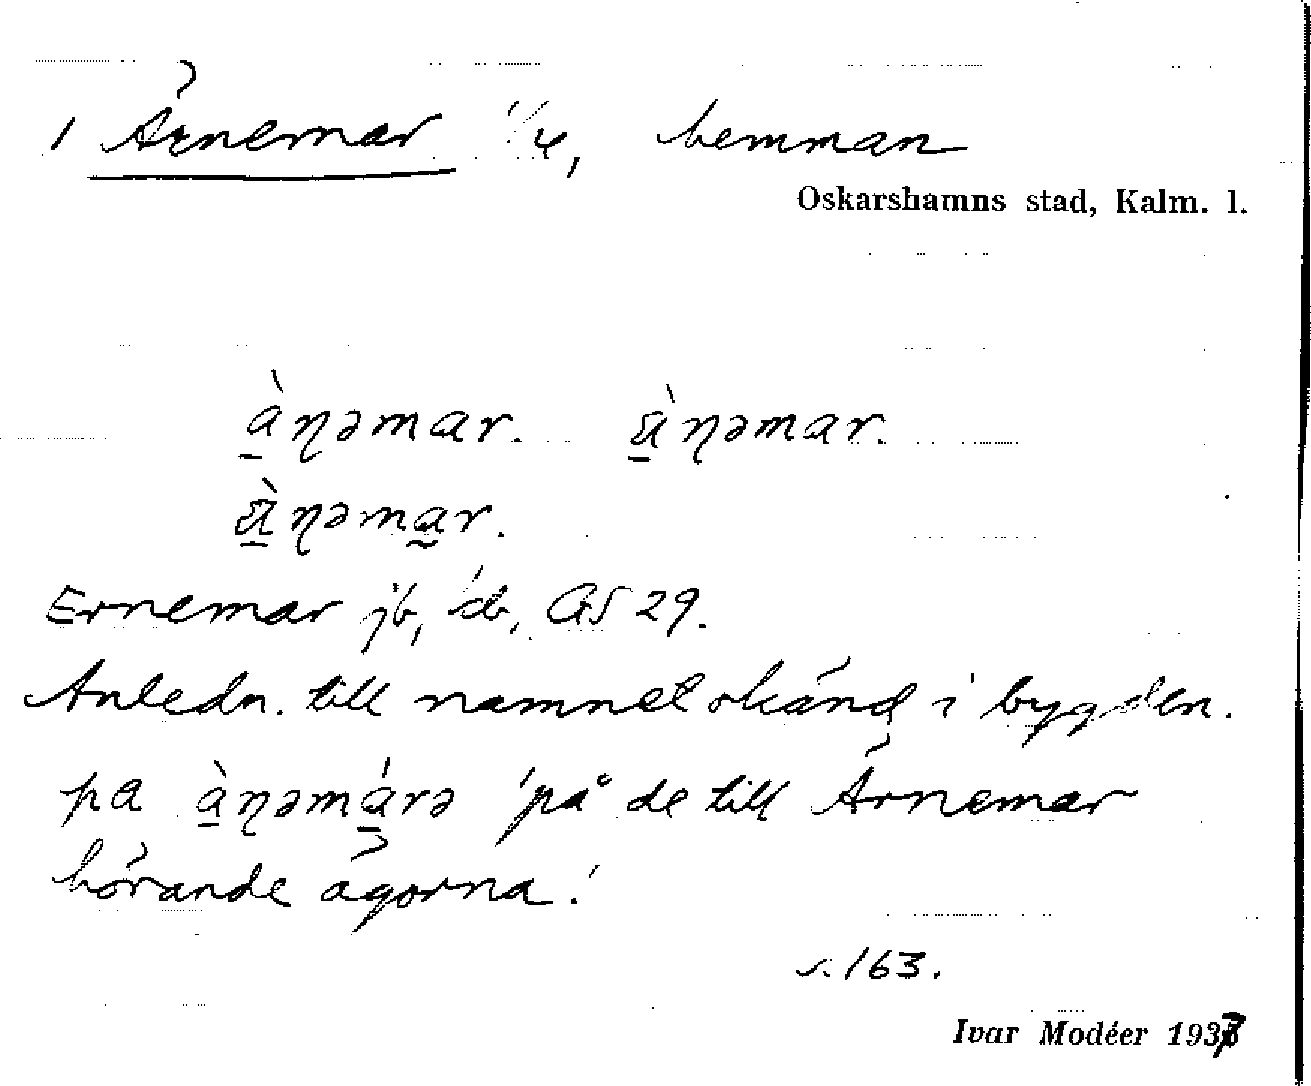 1 Ärnemar 1/4, hemman
Oskarshamns stad, Kalm. l.
à̠ɳəmar. æ̠̀ɳəmar.
æ̠̀ɳəma̠r.
Ernemar jb, db, GS 29.
Anledn. till namnet okänd i bygden.
pa à̠ɳəmá̠rə 'på de till Ärnemar
hörande ägorna'.
s. 163.
Ivar Modéer 1937